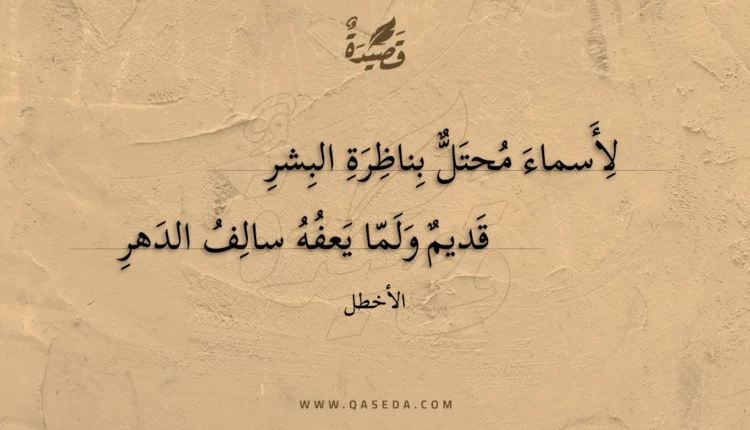 قَصِيدَةٌ
لِأَسماءَ مُحتَلٌّ بِناظِرَةِ البِشرِ
قَديمٌ وَلَمّا يَعفُهُ سالِفُ الدَهرِ
الأخطل
WWW.QASEDA.COM